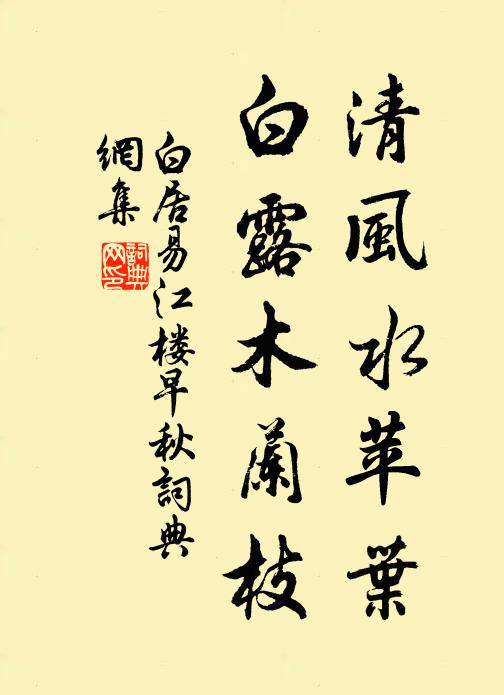 清風水苹葉
白露木蘭枝
白居易江楼早秋詞典
網集
詞典网印